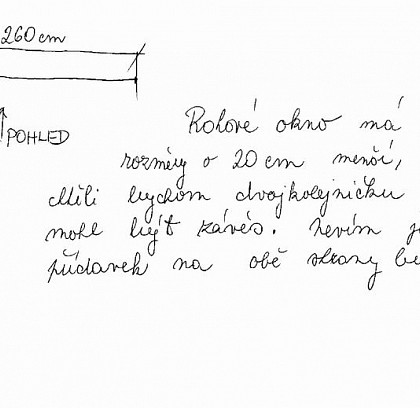 260 cm
POHLED
Rohové okno má
rozměry o 20 cm menší,
chtěli bychom dvojkolejničku
mohl být závěs. Nevím
přídavek na obě strany